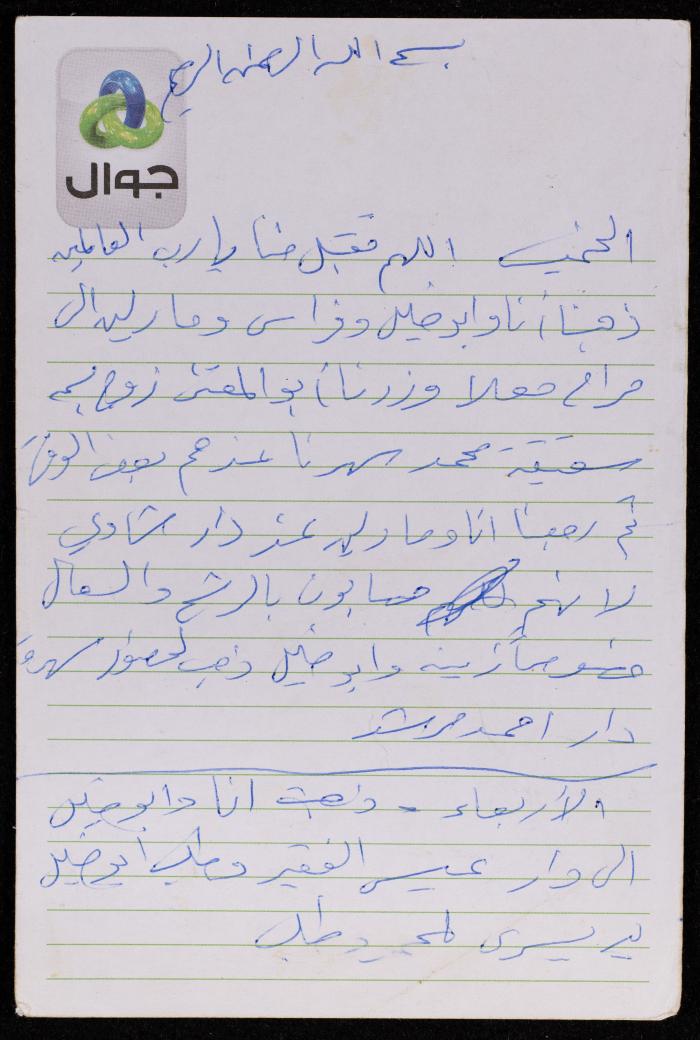 بسم الله الرحمن الرحيم
جوال
الخميس اللهم تقبل منا يا رب العالمين
ذهبنا أنا وابو خليل وفراس ومارلين الى
مراح معلا وزرنا أبو المعتز زوج نسمه
شقيقة محمد سهرنا عندهم بعض الوقت
ثم رجعنا انا ومارلين عند دار شاوي
لانهم مصابون بالرشح والسعال
خصوصاً زينه وابو خليل ذهب لحضور سهرة
دار احمد مرشد
الأربعاء - ذهبت انا وابو خليل
الى دار عيسى الفقير وطلب ابو خليل
يد يسرى